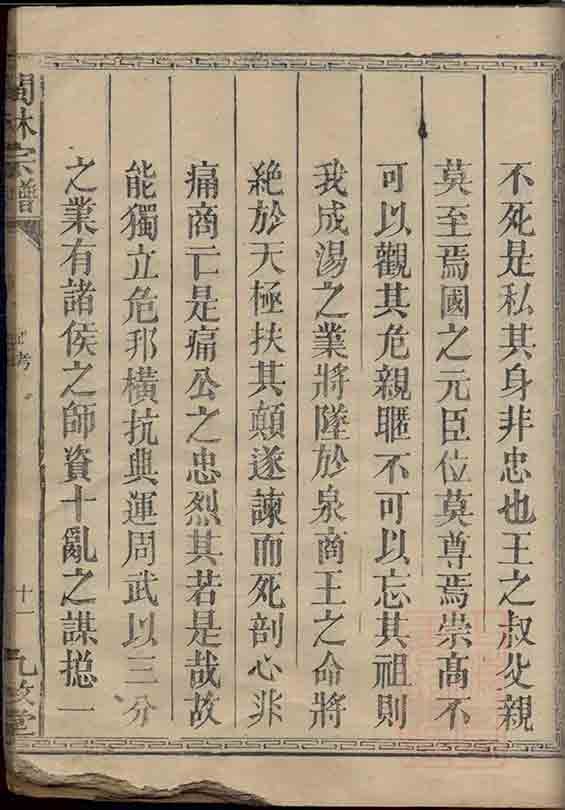 不死是私其身非忠也王之叔父親
莫至焉國之元臣位莫尊焉崇高不
可以觀其危親暱不可以忘其祖則
我成湯之業將墜於泉商王之命將
絶於天極扶其顛遂諫而死剖心非
痛商亡是痛公之忠烈其若是哉故
能獨立危邦橫抗興運周武以三分
之業有諸侯之師資十亂之謀揔一
林宗譜
考
十一
九牧堂